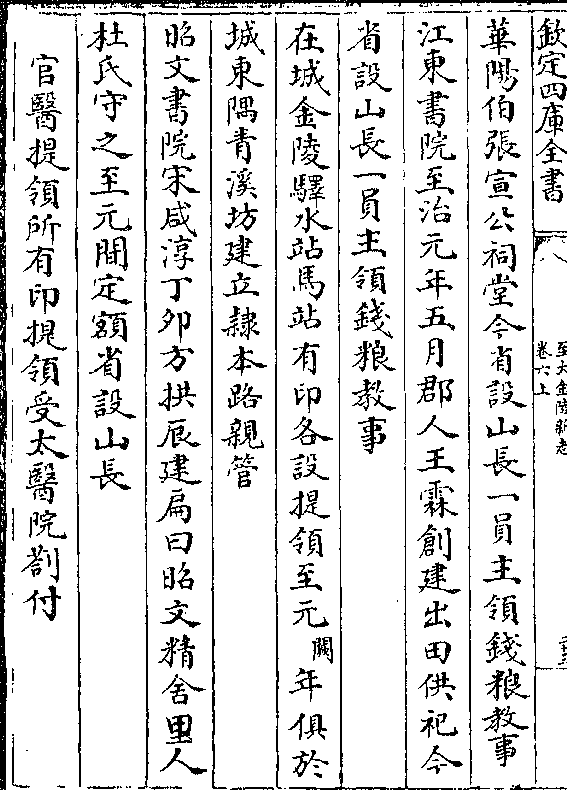 欽定四庫全書
至大金陵新志
卷六上
華陽伯張宣公祠堂今省設山長一員主領錢粮教事
江東書院至治元年五月郡人王霖創建出田供祀今
省設山長一員主領錢粮教事
在城金陵驛水站馬站有印各設提領至元闕年俱於
城東隅青溪坊建立隷本路親管
昭文書院宋咸淳丁卯方拱辰建扁曰昭文精舍里人
杜氏守之至元間定額省設山長
官醫提領所有印提領受太醫院劄付